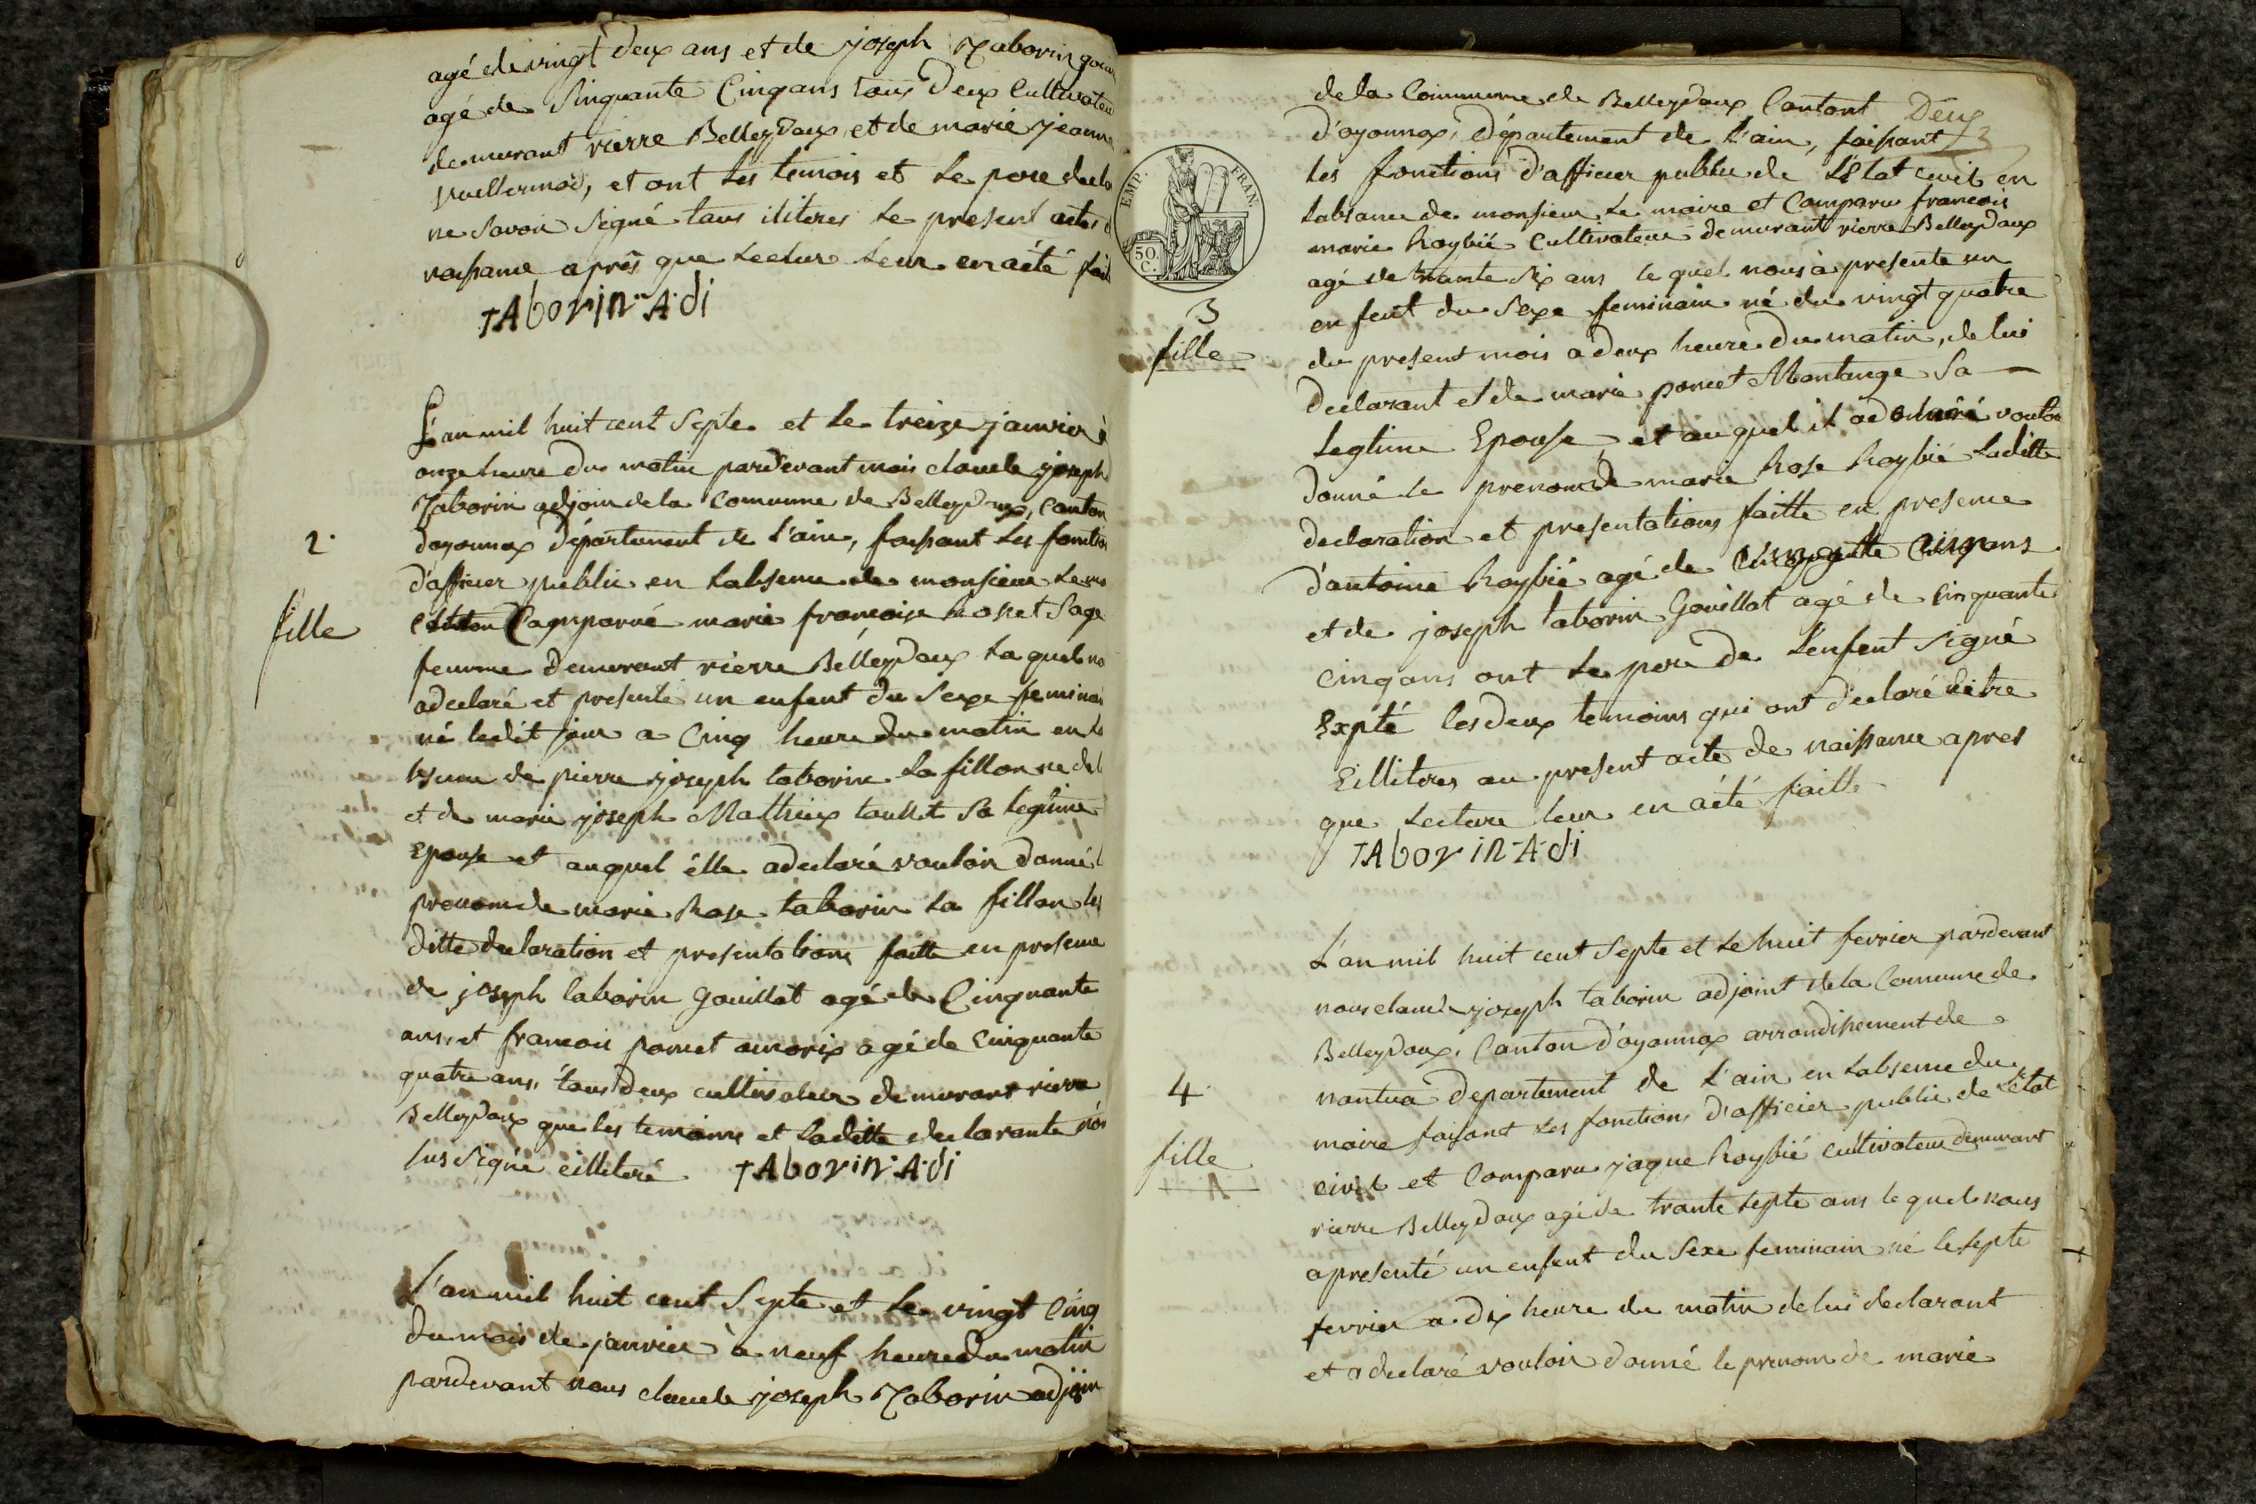 agé de vingt deux ans et de joseph Taborin
agé de Sinquante Cinq ans tous Deux Cultivateu
demurant rierre Belleydoux, et de marie jeanne
Vuillermoz, et ont les temois et le pere decla
ne Savoir Signé tous iliteres le present acte
naissance après que lecture leur en aété fait
TAborin A di
2.
fille
L'an mil huit cent Septe et le treize janvier à
onze heure du matin pardevant mois claude joseph
Taborin adjoin de la Comunne de Belleydoux, Canton
doyonnax département de l'ain, faisant les fonction
d'afficier public en labsence de monsieur le ma
Comparué marie françoise Rosset Sage
femme demurant rierre Belleydoux la quel no
adeclaré et presenté un enfent du Sexe feminai
né ledit jour a Cinq heure du matin en la
bsence de pierre joseph taborin la fillon ne de
et de marie joseph Mathieux taullet Sa legtime
Epouse et auquel élle adeclaré vouloir donné l
prenom de marie Rose taborin la fillon les
ditte declaration et presentations faitte en presence
de joseph taborin Gouillat agé de Cinquante
ans, et francois poncet amorix agé de Cinquante
quatre ans, tous deux cultivateur demurant rierre
Belleydoux que les temoins et laditte declarante nón
Sus Signé eilliteré TAborin A di
L'an mil huit cent Septe et le vingt Cinq
du mois de janvier à neuf heure du matin
pardevant nous claude joseph Taborin adjoin
Deux
2
dela Commune de Belleydoux Cantont
d'oyonnax, département de l'ain, faisant
les fonctions d'afficier public de L'Etat civil en
labsance de monsieur le maire et Comparu francois
marie Roybié Cultivateur demurant rierre Belleydoux
agé de trante Six ans le quel nous à presenté un
EMP. FRAN.
50. C.
3
fille
enfent du Sexe feminain né du vingt quatre
du present mois a deux heure du matin, de lui
declarant et de marie poncet Montange Sa
Legtime Epouse, et auquel il adeclaré vouloir
donné le prenom de marie Rose Roybié laditte
declaration et presentations faitte en presence
d'antoine Roybié agé de Cinquante Cinq ans
et de joseph taborin Gouillat agé de Cinquante
Cinq ans ont le pere de l'enfent Signé
Expté les deux temoins qui ont déclaré êitre
Eilliteres au present acte de naissance apres
que lecture leur en aété faitte
TAborin A di
4.
fille
L'an mil huit cent Septe et le huit fevrier pardevant
nous claude joseph taborin adjoint dela Comunne de
Belleydoux, Canton d'oyonnax arrondisement de
nantua departement de l'ain en labsence du
maire faisant les fonctions d'afficier public de l'état
civil et Comparu jaque Roybié cultivateur demurant
rierre Belleydoux agé de trante Septe ans le quel nous
apresenté un enfent du Sexe feminain né le Septe
fevrier a dix heure du matin de lui declarant
et adeclaré vouloir donné le prenom de marie